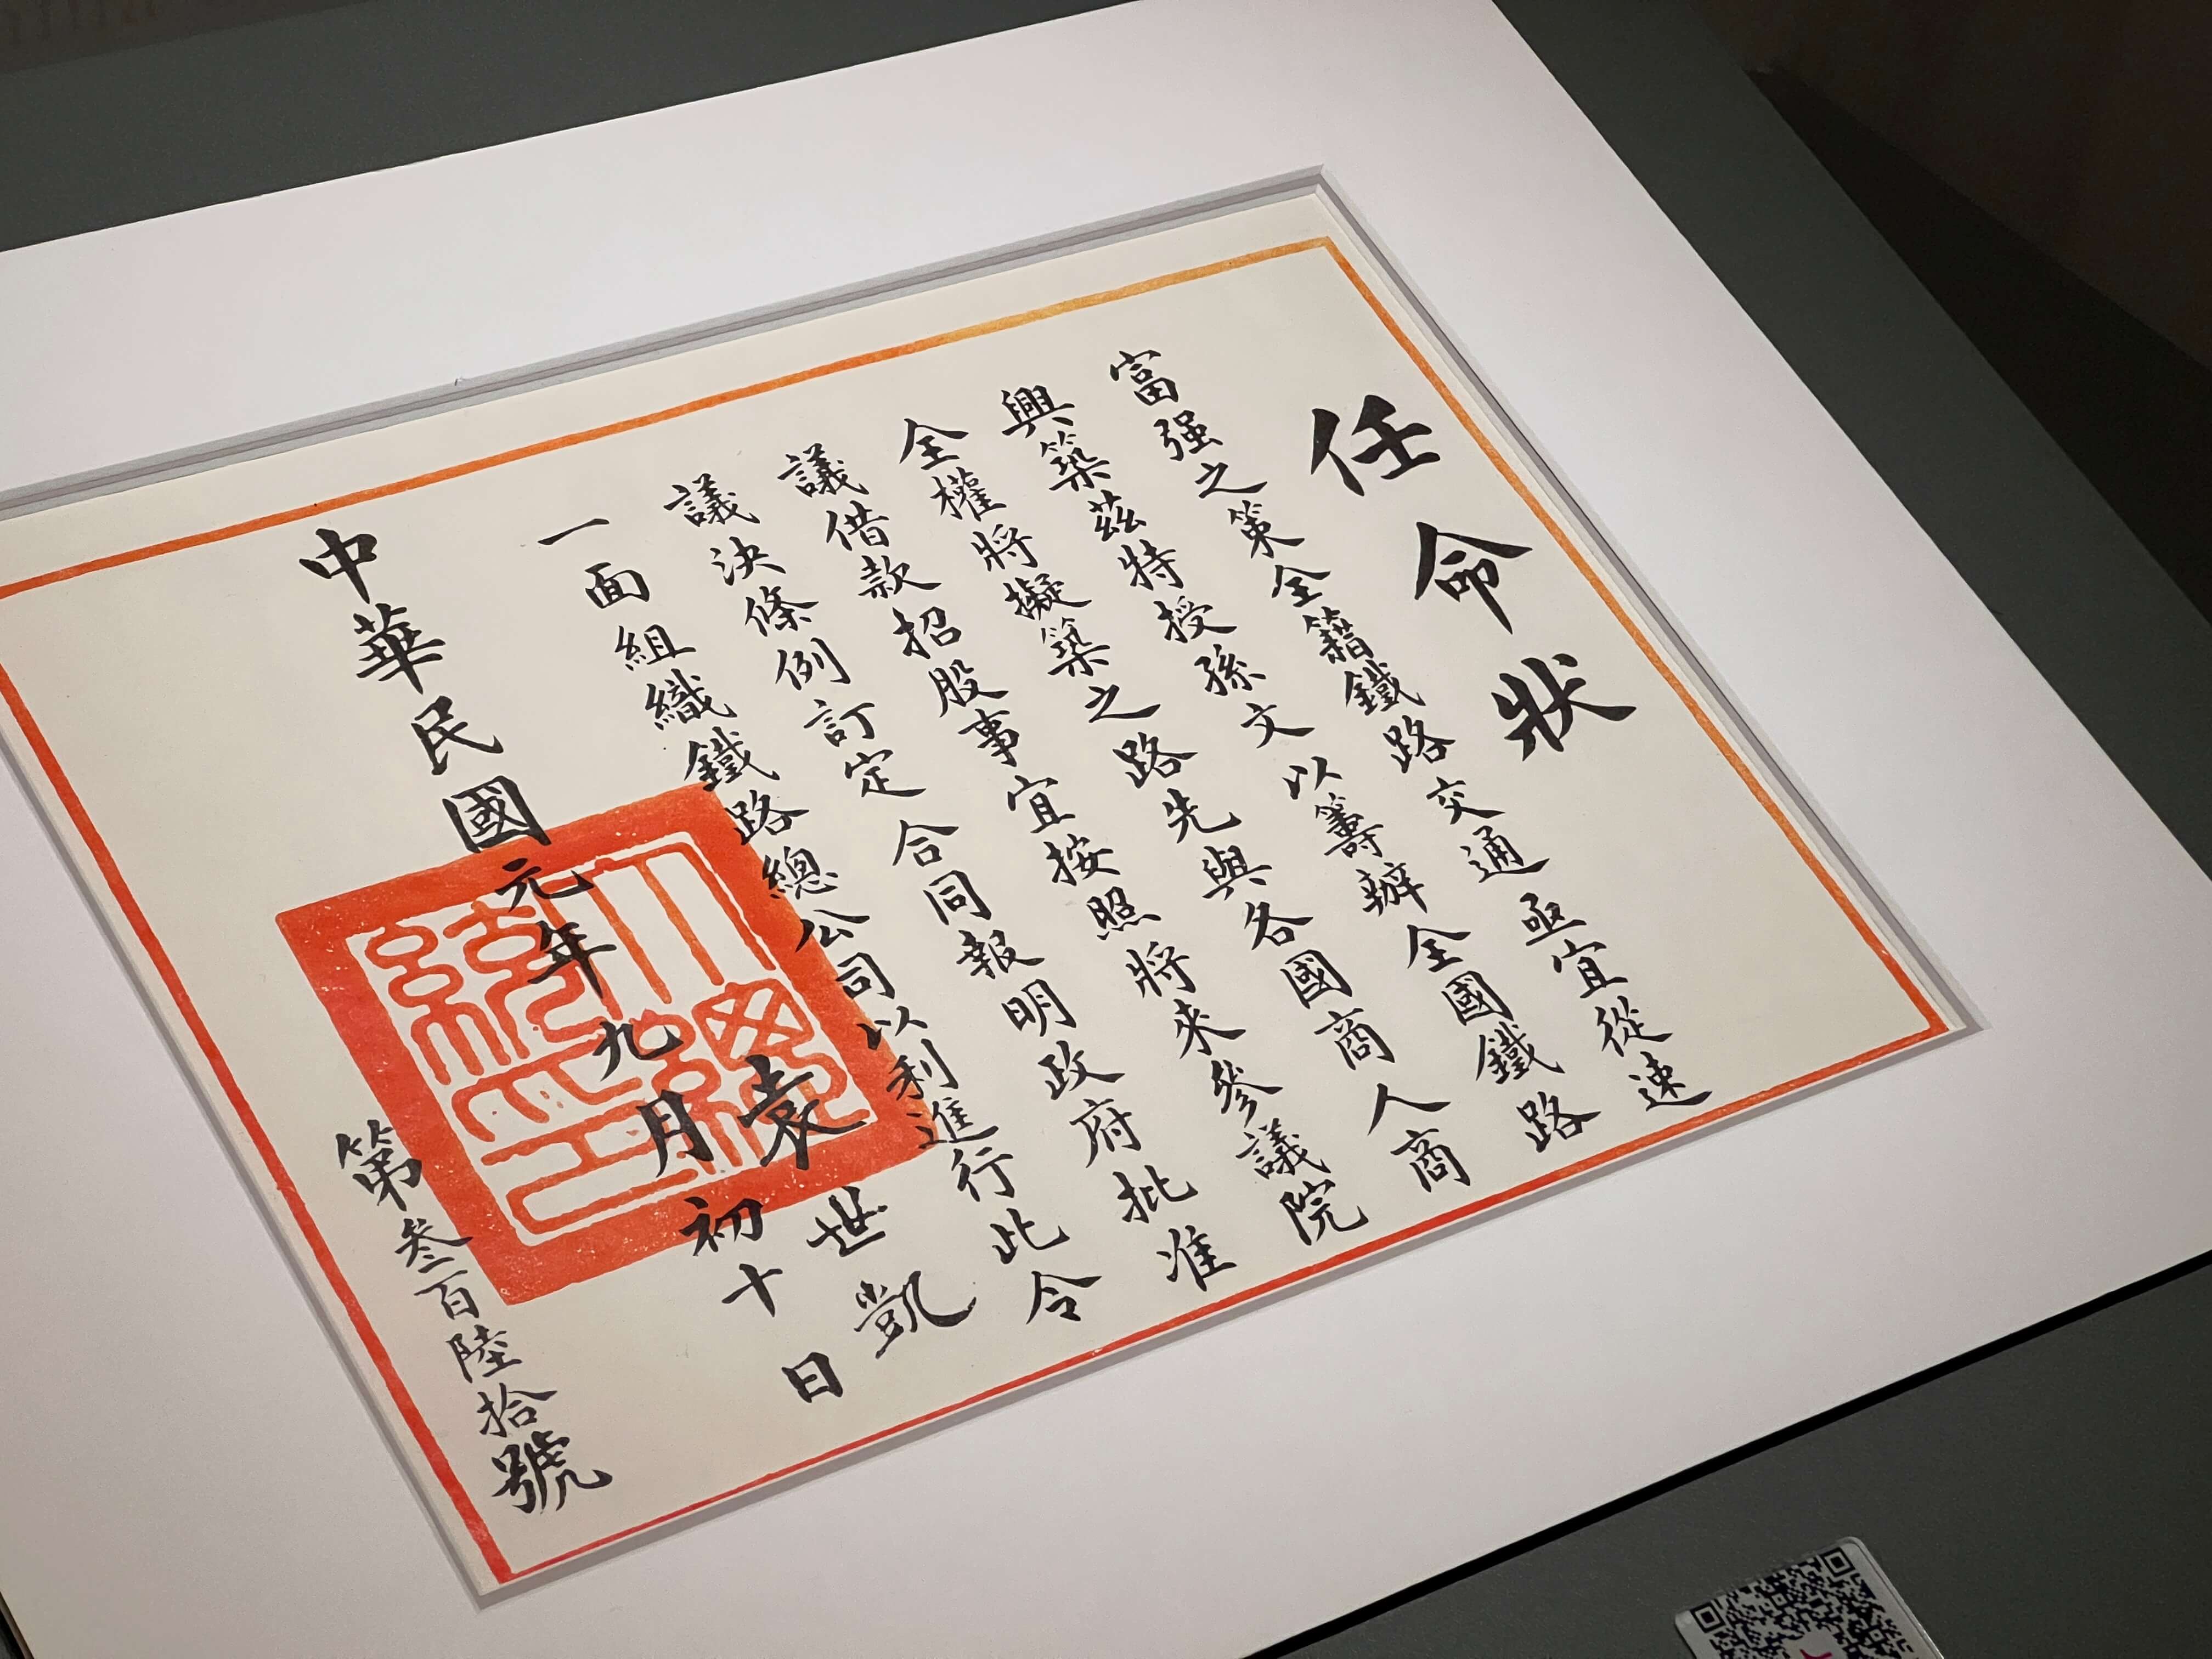 任命狀
富强之策全籍鐵路交通亟宜從速
興築茲特授孫文以籌辦全國鐵路
全權將擬築之路先與各國商人商
議借款招股事宜按照將來參議院
議決條例訂定合同報明政府批准
一面組織鐵路總公司以利進行此令
袁世凱
中華民國元年九月初十日
第叁百陸拾號